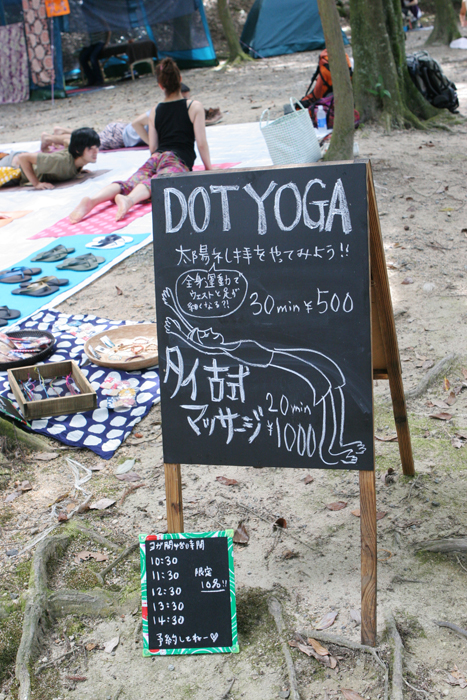 DOT YOGA
太陽ネし拝をやてみよう!!
全身運動で
ウエストと足が
細くなる?!
30min ¥500
タイ古式
マッサージ
20min
¥1000
ヨガ開始時間
10:30
11:30
12:30
13:30
14:30
限定
10名!!
予約してねー♡